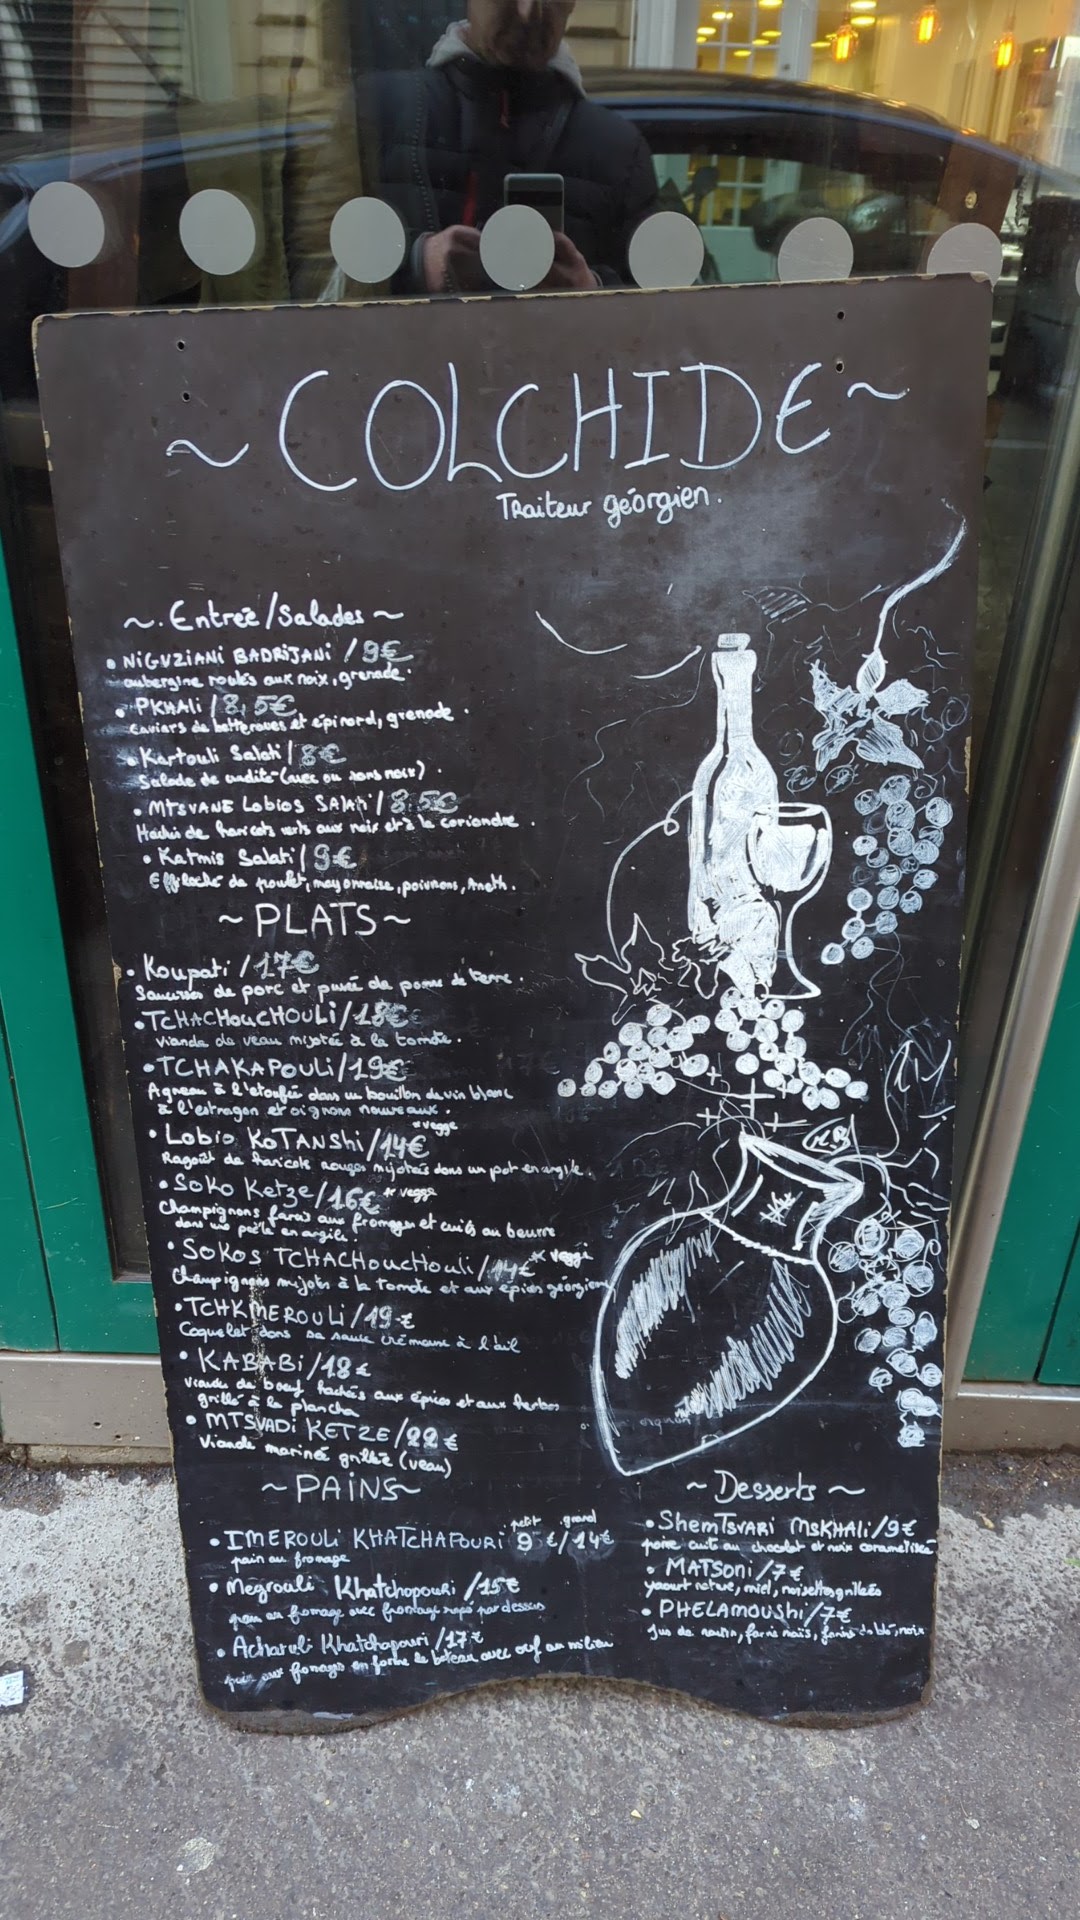 ~ COLCHIDE ~
Traiteur géorgien.
~. Entreé/Salades ~
• NiGVZIANI BADRiJANi / 9€
aubergine roulés aux noix, grenade.
• PKHALi / 8,5€
caviars de betteraves et épinard, grenade.
• Kartouli Salati / 8€
Salade de crudité (avec ou sans noix).
• MTSVANE LOBIOS SALATi / 8.5€
Haché de haricots verts aux noix et à la coriandre.
• Katmis Salati / 9€
Effiloché de poulet, mayonnaise, poivrons, Aneth.
~ PLATS ~
• Koupati / 17€
Saucisses de porc et purée de pomme de terre.
• TCHACHOUCHOULi / 18€
viande de veau mijotée à la tomate.
• TCHAKAPOULi / 19€
Agneau à l'étouffée dans un bouillon de vin blanc
à l'estragon et oignons nouveaux.
• Lobio KoTANShi / 14€ *vegge
Ragoût de haricots rouges mijotés dans un pot en argile.
• SoKo Ketze / 16€ * vegge
Champignons farcis aux fromages et cuits au beurre
dans une poêle en argile.
• SOKOS TCHACHOUCHOULi / 14€ * veggi
Champignons mijotés à la tomate et aux épices géorgien
• TCHKMEROULI / 19€
Coquelet dans sa sauce crémeuse à l'ail
• KABABi / 18€
viande de boeuf hachés aux épices et aux herbes
grillé à la plancha
• MTSVADi KETZE / 22€
Viande mariné grillée (veau)
~ PAiNS ~
petit grand
• IMEROULi KHATCHAPOURi 9€/14€
pain au fromage
• Megrouli Khatchapouri / 15€
pain au fromage avec fromage rapé par dessus
• Acharuli Khatchapouri / 17€
pain aux fromages en forme de bateau avec oeuf au milieu
~ Desserts ~
• ShemTsvARi MSKHALi / 9€
poire cuite au chocolat et noix caramelisée
• MATSoni / 7€
yaourt nature, miel, noisettes grillées
• PHELAMOUShi / 7€
Jus de raisin, farine maïs, farine de blé, noix